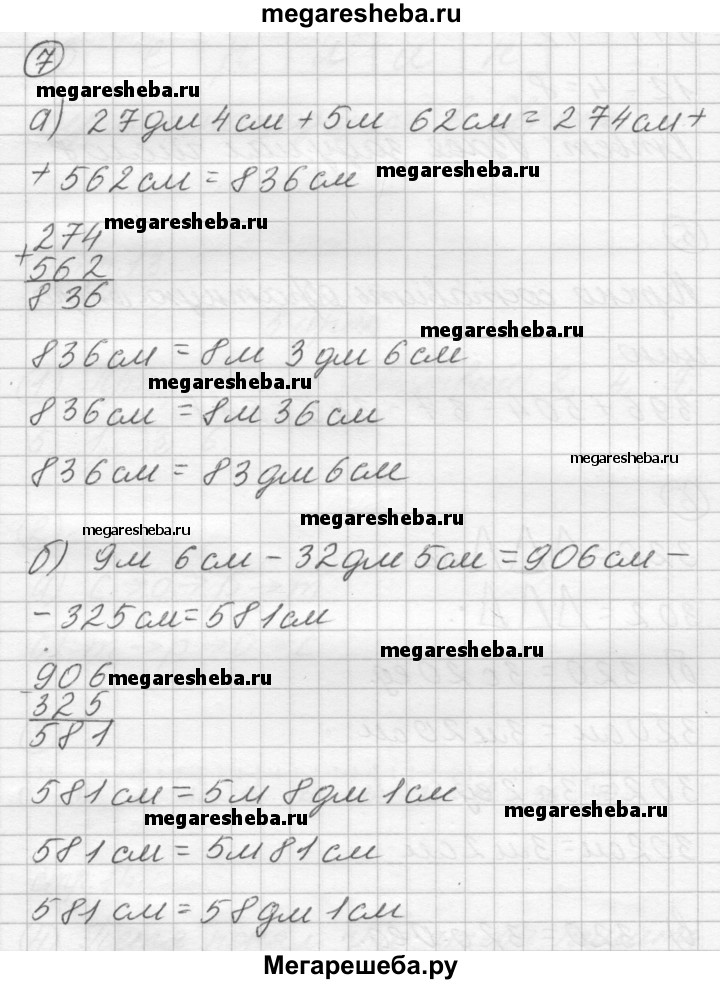 megaresheba.ru
7
megaresheba.ru
а) 27дм 4см + 5м 62см = 274см +
+ 562см = 836см
megaresheba.ru
megaresheba.ru
274
+
562
836
megaresheba.ru
836см = 8м 3дм 6см
megaresheba.ru
836см = 8м 36см
836см = 83дм 6см
megaresheba.ru
megaresheba.ru
megaresheba.ru
б) 9м 6см - 32дм 5см = 906см -
- 325см = 581см
megaresheba.ru
906
megaresheba.ru
-
325
581
581см = 5м 8дм 1см
megaresheba.ru
megaresheba.ru
581см = 5м 81см
581см = 58дм 1см
Мегарешеба.ру